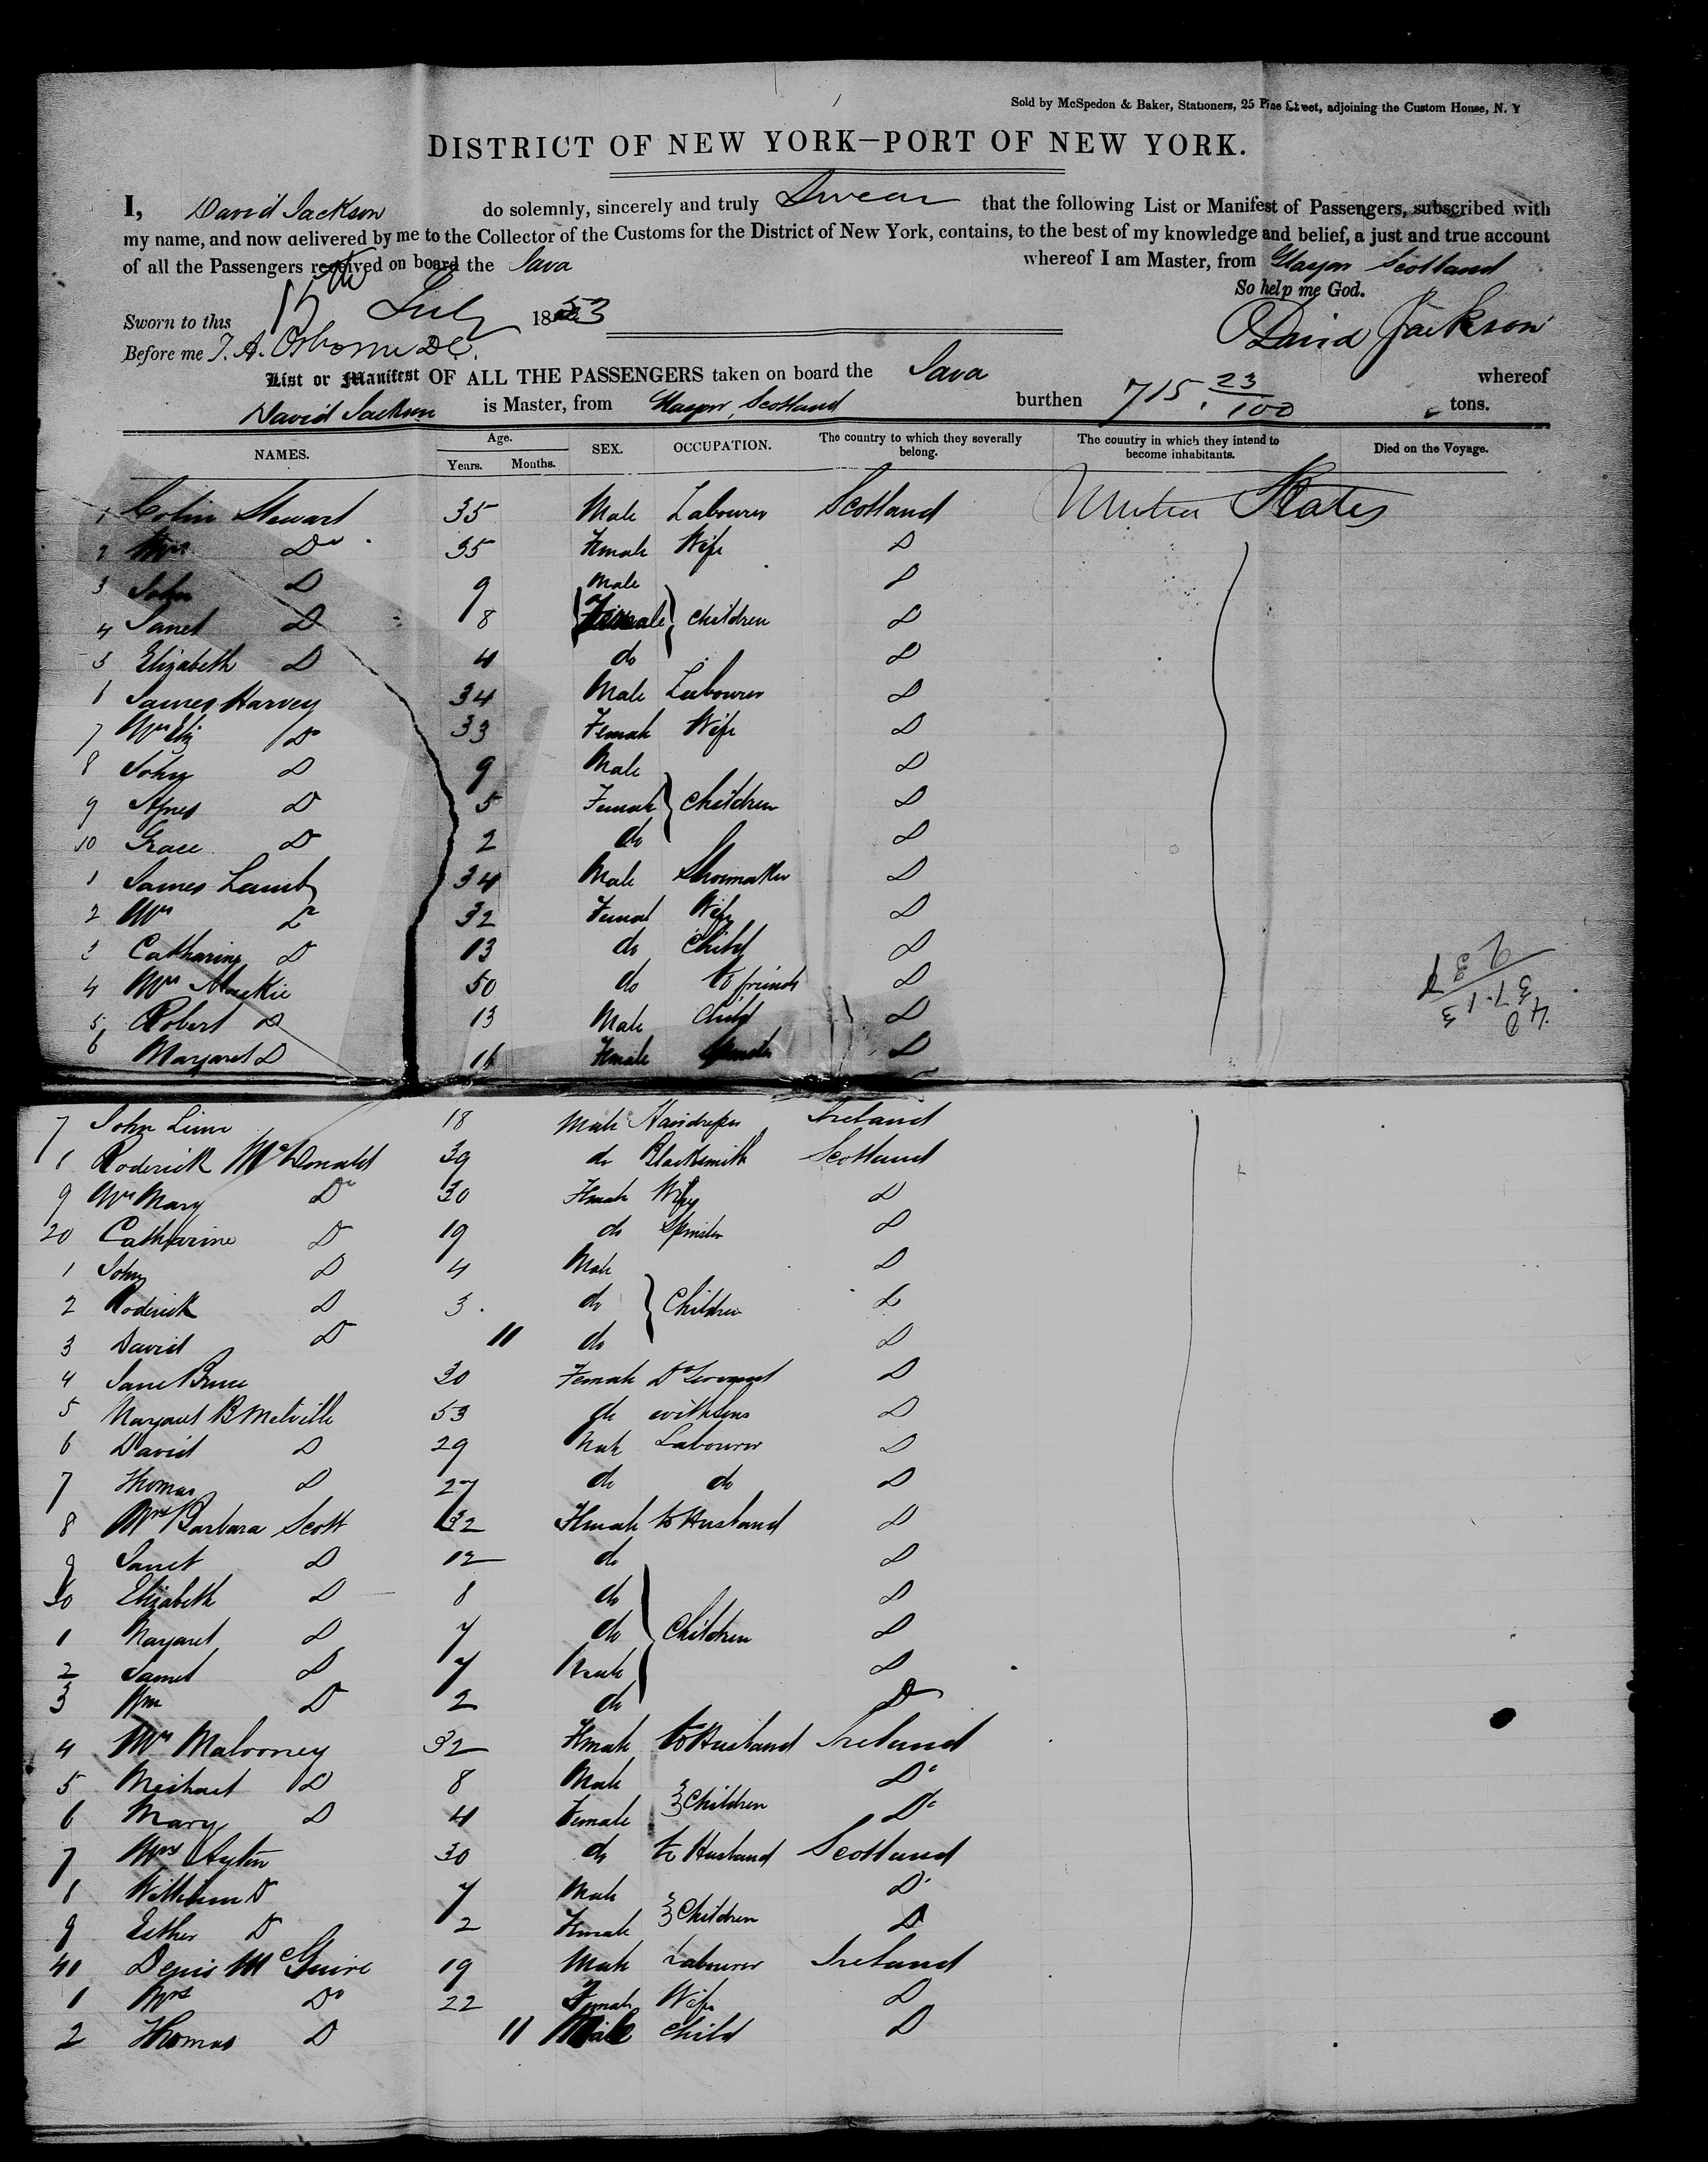 Sold by McSpedon & Baker, Stationers, 25 Pine Street, adjoining the Custom House, N. Y
DISTRICT OF NEW YORK—PORT OF NEW YORK.
I, David Jackson do solemnly, sincerely and truly Swear that the following List or Manifest of Passengers, subscribed with
my name, and now delivered by me to the Collector of the Customs for the District of New York, contains, to the best of my knowledge and belief, a just and true account
of all the Passengers received on board the Java whereof I am Master, from Glasgow Scotland
So help me God.
Sworn to this 15th July 1853
David Jackson
Before me J. A. Osborne D.C.
List or Manifest OF ALL THE PASSENGERS taken on board the Java whereof
David Jackson is Master, from Glasgow, Scotland burthen 715. 23/100 tons.
NAMES. Age. Years. Months. SEX. OCCUPATION. The country to which they severally belong. The country in which they intend to become inhabitants. Died on the Voyage.
1 Colin Stewart 35 Male Labourer Scotland United States
2 Mrs Do 35 Female Wife D
3 John D 9 Male D
4 Janet D 8 Female Children D
5 Elizabeth D 4 do D
6 James Harvey 34 Male Labourer D
7 Mrs Eliz Do 33 Female Wife D
8 John D 9 Male D
9 Agnes D 5 Female Children D
10 Grace D 2 do D
1 James Lamb 34 Male Shoemaker D
2 Mrs Do 32 Female Wife D
3 Catharine D 13 do Child D
4 Mrs Mackie 50 do to friends D
5 Robert D 13 Male Child D
6 Margaret D 16 Female Spinster D
7 John 18 Male Ireland
8 Roderick McDonald 39 do Blacksmith Scotland
9 Mrs Mary Do 30 Female Wife D
20 Catharine D 19 do Spinster D
1 John D 4 Male D
2 Roderick D 3 do Children D
3 David D 11 do D
4 Jane Bruce 30 Female D Servant D
5 Margaret B Melville 53 do with sons D
6 David D 29 Male Labourer D
7 Thomas D 27 do do D
8 Mrs Barbara Scott 32 Female to Husband D
9 Janet D 12 do D
30 Elizabeth D 8 do D
1 Margaret D 7 do Children D
2 D 7 Male D
3 Wm D 2 do D
4 Mrs Malooney 32 Female to Husband Ireland
5 Meihael D 8 Male Children Do
6 Mary D 4 Female Do
7 Mrs Ayton 30 do to Husband Scotland
8 William D 7 Male Children D
9 Esther D 2 Female D
40 Denis McGuire 19 Male Labourer Ireland
1 Mrs Do 22 Female Wife D
2 Thomas D 11 Male Child D